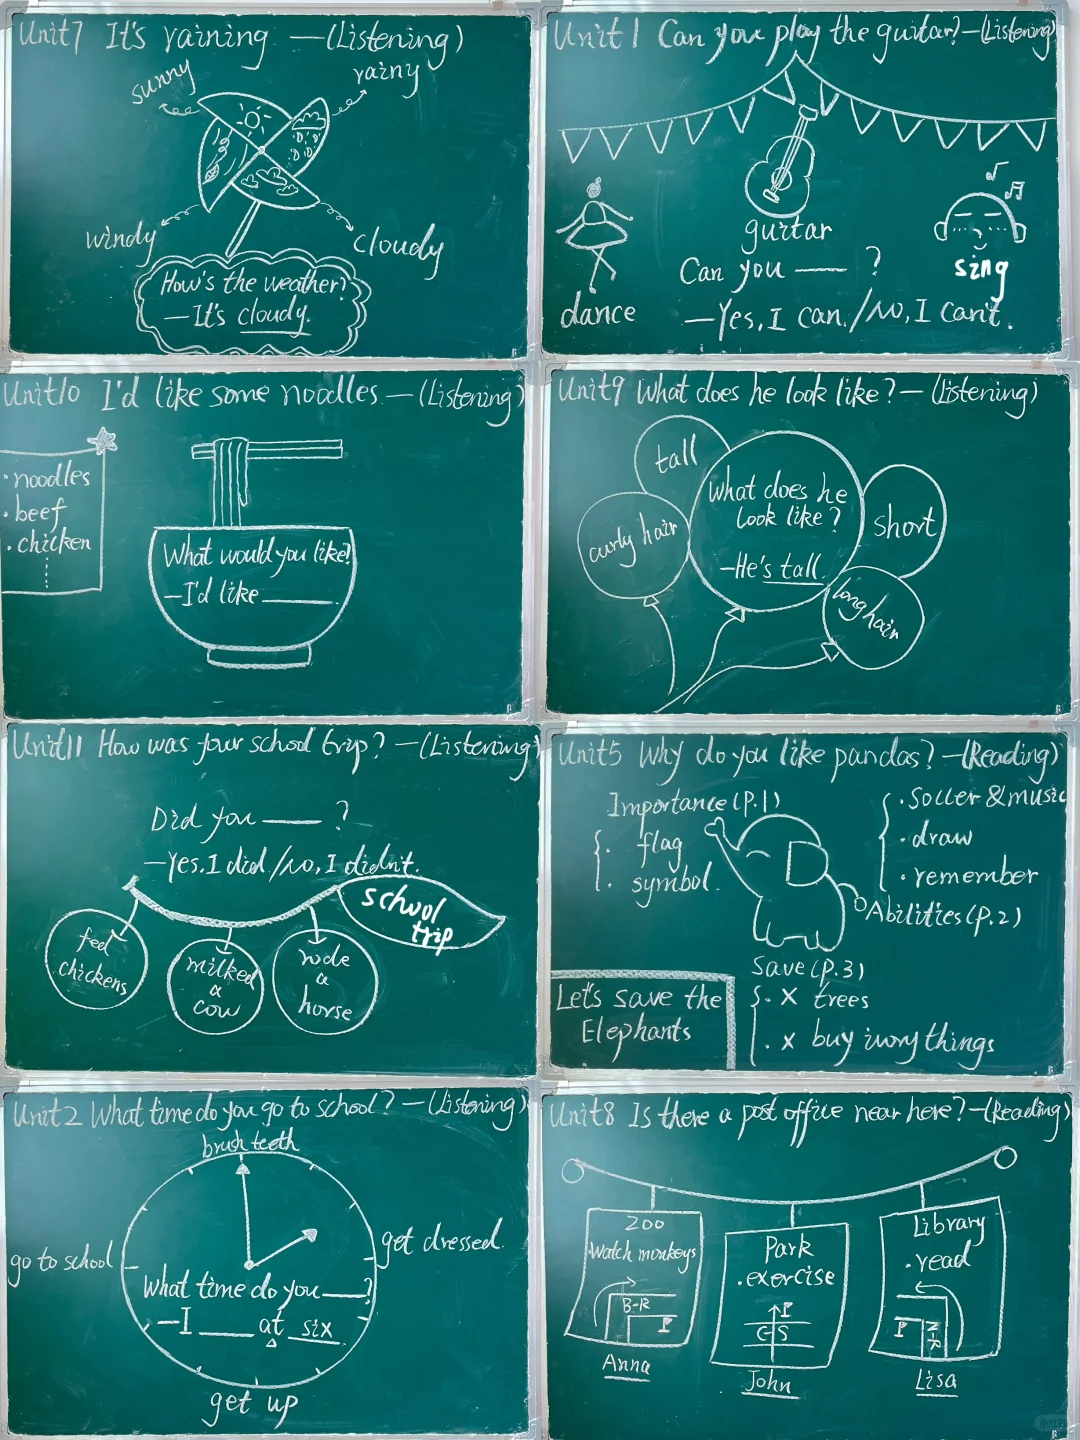 Unit7 It's raining —(Listening)
sunny
rainy
windy
cloudy
How's the weather?
—It's cloudy.
Unit 1 Can you play the guitar?—(Listening)
guitar
dance
sing
Can you ___ ?
—Yes, I can./No, I can't.
Unit10 I'd like some noodles.—(Listening)
·noodles
·beef
·chicken
What would you like?
—I'd like ______
Unit9 What does he look like?—(Listening)
tall
curly hair
What does he
look like?
—He's tall.
short
long hair
Unit11 How was your school trip?—(Listening)
Did you ____ ?
—Yes, I did/No, I didn't.
school
trip
fed
chickens
milked
a
cow
rode
a
horse
Unit5 Why do you like pandas?—(Reading)
Importance(P.1)
· flag
· symbol.
· Soccer & music
· draw
· remember
Abilities(P.2)
Save(P.3)
· × trees
· × buy ivory things
Let's save the
Elephants
Unit2 What time do you go to school?—(Listening)
brush teeth
go to school
get dressed.
What time do you ___?
—I ____ at six
get up
Unit8 Is there a post office near here?—(Reading)
Zoo
·Watch monkeys
B-R
P
Anna
Park
·exercise
P
C-S
John
Library
·read
P
N-R
Lisa